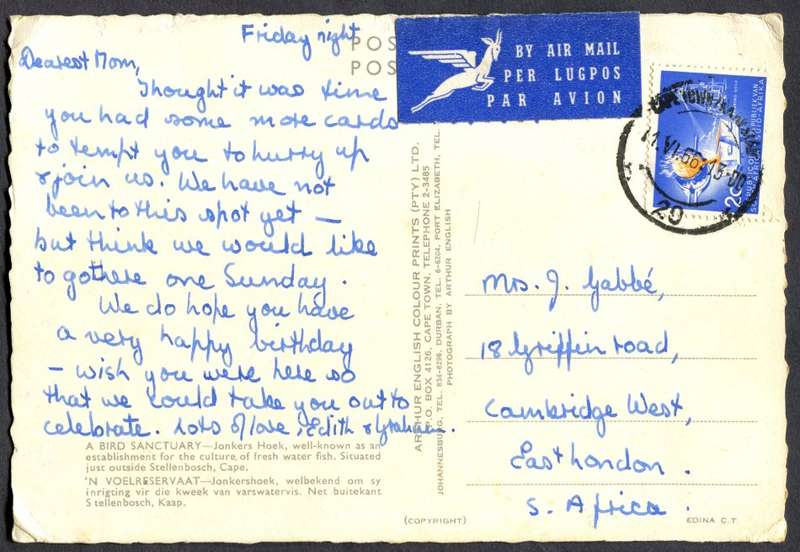 Friday night
POS
POS
Dearest Mom,
Thought it was time
you had some more cards
to tempt you to hurry up
& join us. We have not
been to this spot yet —
but think we would like
to go there one Sunday.
We do hope you have
a very happy birthday
– wish you were here so
that we could take you out to
celebrate. Lots of love, Edith & Graham.
A BIRD SANCTUARY—Jonkers Hoek, well-known as an
establishment for the culture of fresh water fish. Situated
just outside Stellenbosch, Cape.
'N VOELRESERVAAT—Jonkershoek, welbekend om sy
inrigting vir die kweek van varswatervis. Net buitekant
Stellenbosch, Kaap.
ARTHUR ENGLISH COLOUR PRINTS (PTY) LTD.
P.O. BOX 4126, CAPE TOWN, TELEPHONE 2-3485
JOHANNESBURG, TEL. 834-6296, DURBAN, TEL. 6-6204, PORT ELIZABETH, TEL.
PHOTOGRAPH BY ARTHUR ENGLISH
(COPYRIGHT)
BY AIR MAIL
PER LUGPOS
PAR AVION
REPUBLIEK VAN
SUID-AFRIKA
REPUBLIC OF
SOUTH AFRICA
2c
CAPE TOWN-KAAPSTAD
11.VI.66-13-00
20
Mrs. J. Gabbé,
18 Griffin road,
Cambridge West,
East London.
S. Africa.
EDINA C.T.